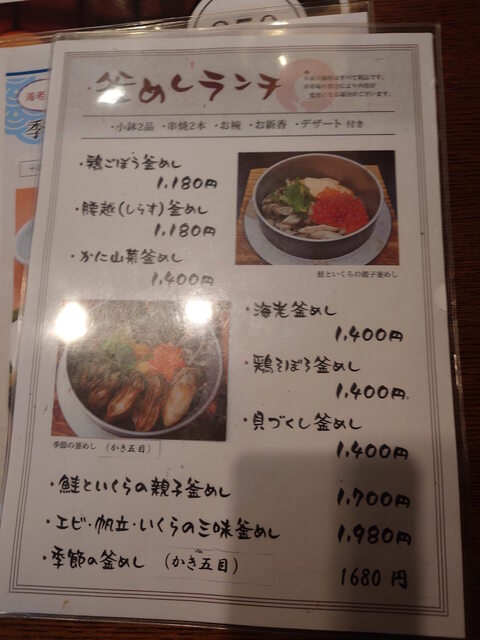 釜めしランチ
・小鉢2品 ・串焼2本 ・お椀 ・お新香 ・デザート 付き
・鶏ごぼう釜めし
1,180円
・腰越(しらす)釜めし
1,180円
・かに山菜釜めし
1,400円
鮭といくらの親子釜めし
・海老釜めし
1,400円
・鶏そぼろ釜めし
1,400円
・貝づくし釜めし
1,400円
季節の釜めし (かき五目)
・鮭といくらの親子釜めし 1,700円
・エビ・帆立・いくらの三味釜めし 1,980円
・季節の釜めし (かき五目) 1680円
海老
季